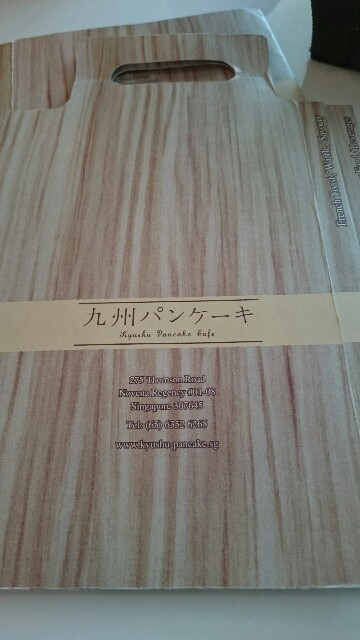 九州パンケーキ
Kyushu Pancake Cafe
275 Thomson Road
Novena Regency #01-08
Singapore 307645
Tel: (65) 6352 6265
www.kyushu-pancake.sg
French Toast, Waffle, Savoury